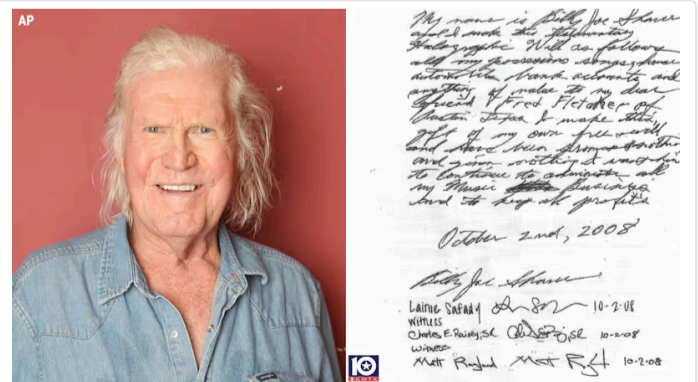 AP
My name is Billy Joe Shaver
and I make this Testamentary
Holographic Will as follows
all my possessions songs, house
automobiles bank accounts and
anything of value to my dear
friend Fred Fletcher of
Austin Texas I make this
gift of my own free will
and have been promised nothing
and given nothing
to continue to administer all
my Music Business
and to keep all profits
October 2nd, 2008
Billy Joe Shaver
Lainie Safady 10-2-08
Witness
Charles E. Rainey, SR 10-2-08
Witness
Matt Ragland 10-2-08
10
KWTX